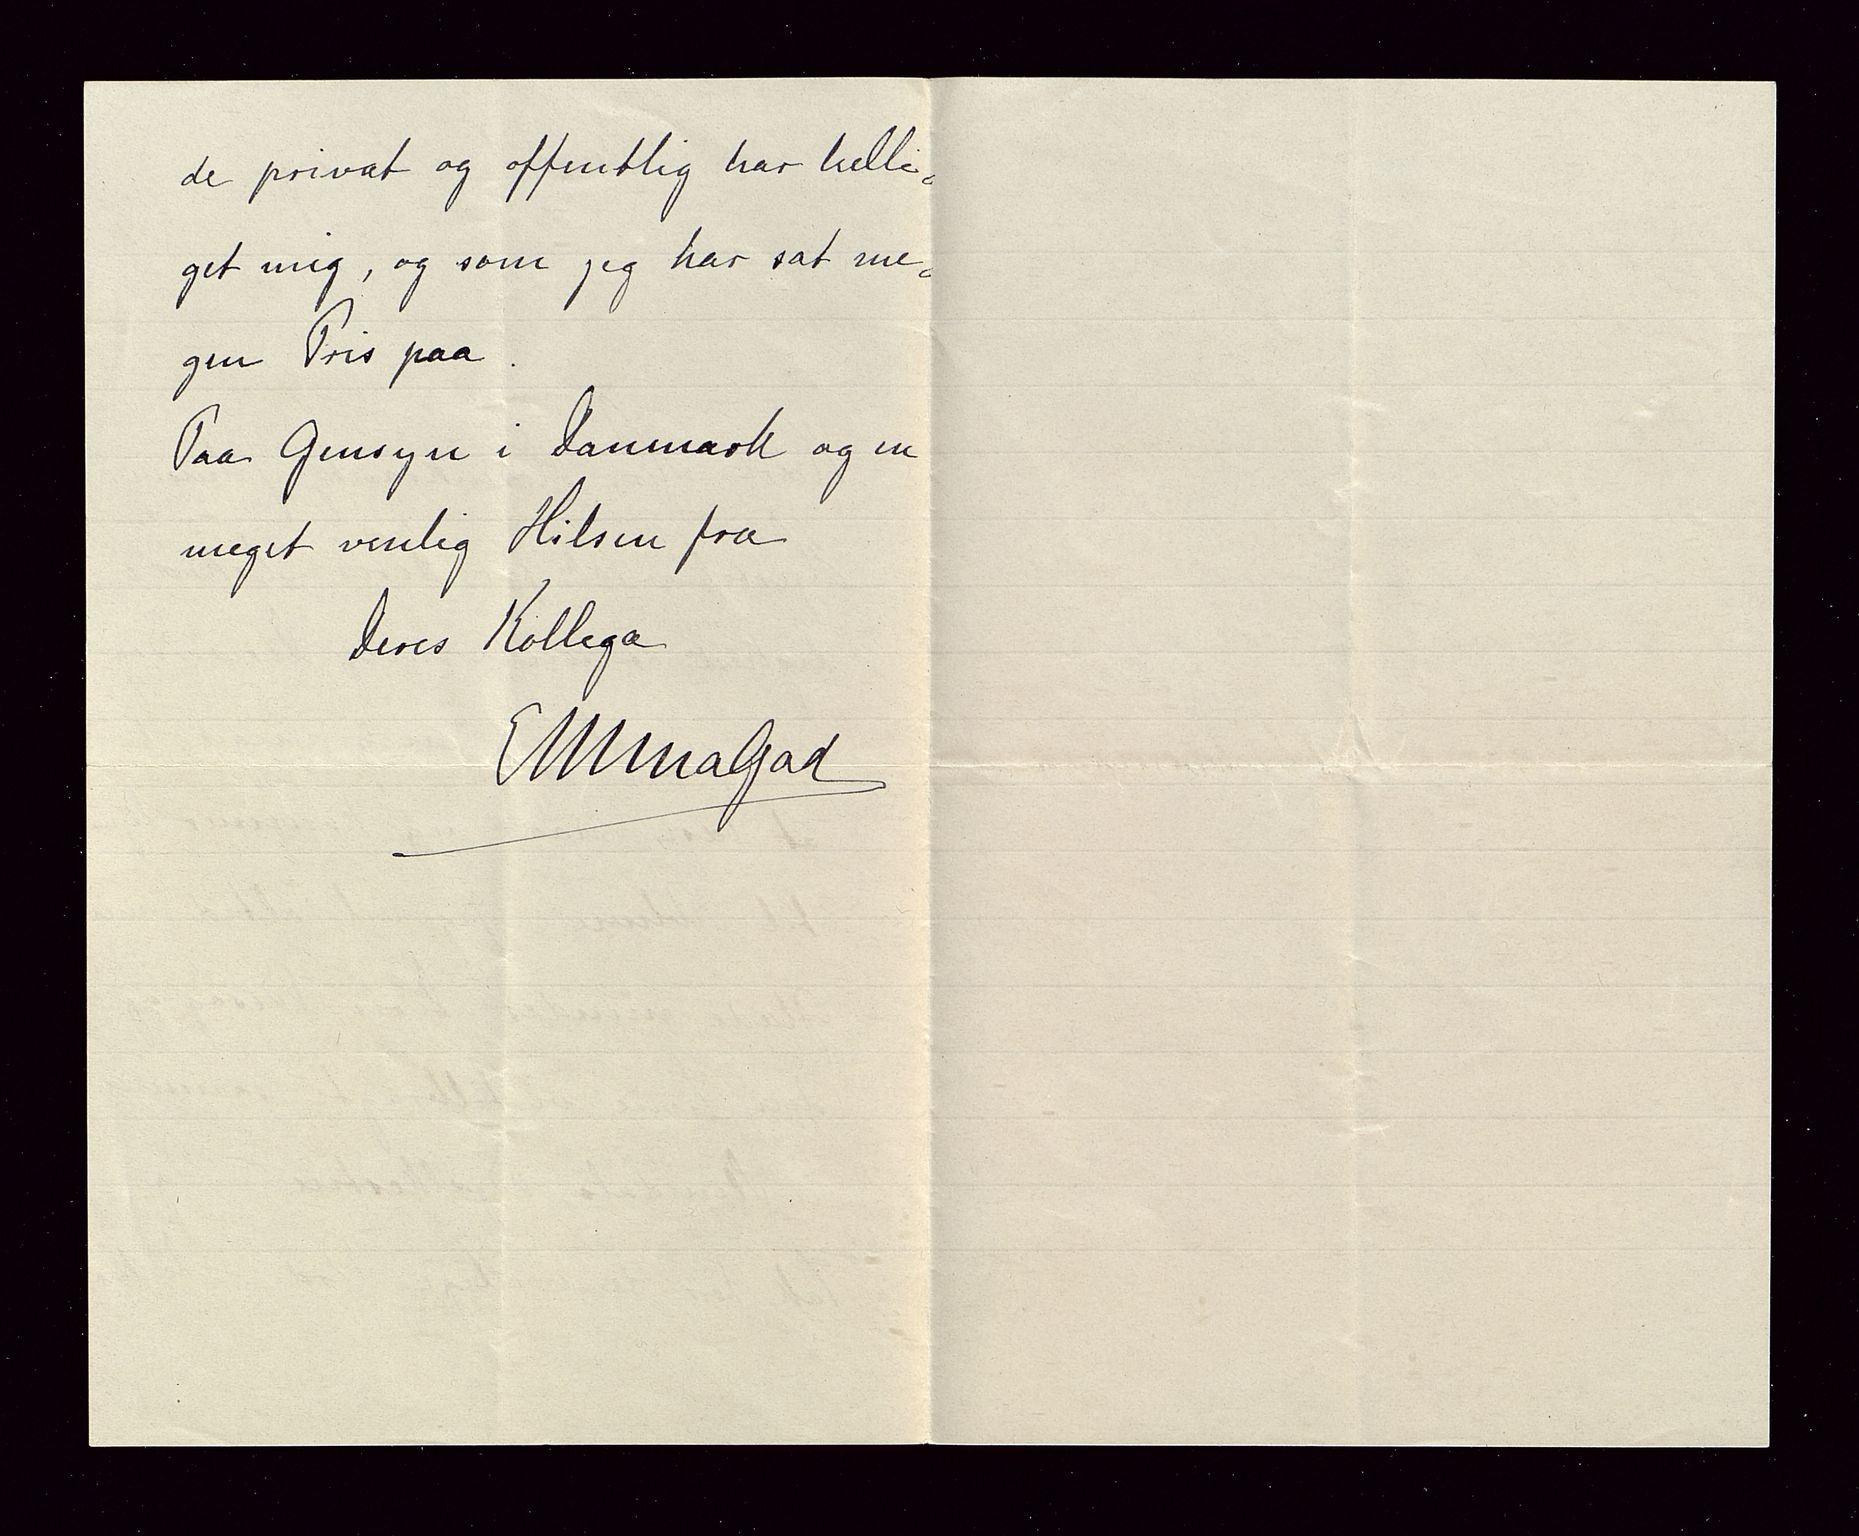 de privat og offentlig har helli-
get mig, og som jeg har sat me-
gen Pris paa.
Paa Gensyn i Danmark og en
meget venlig Hilsen fra
Deres Kollega
Emma Gad